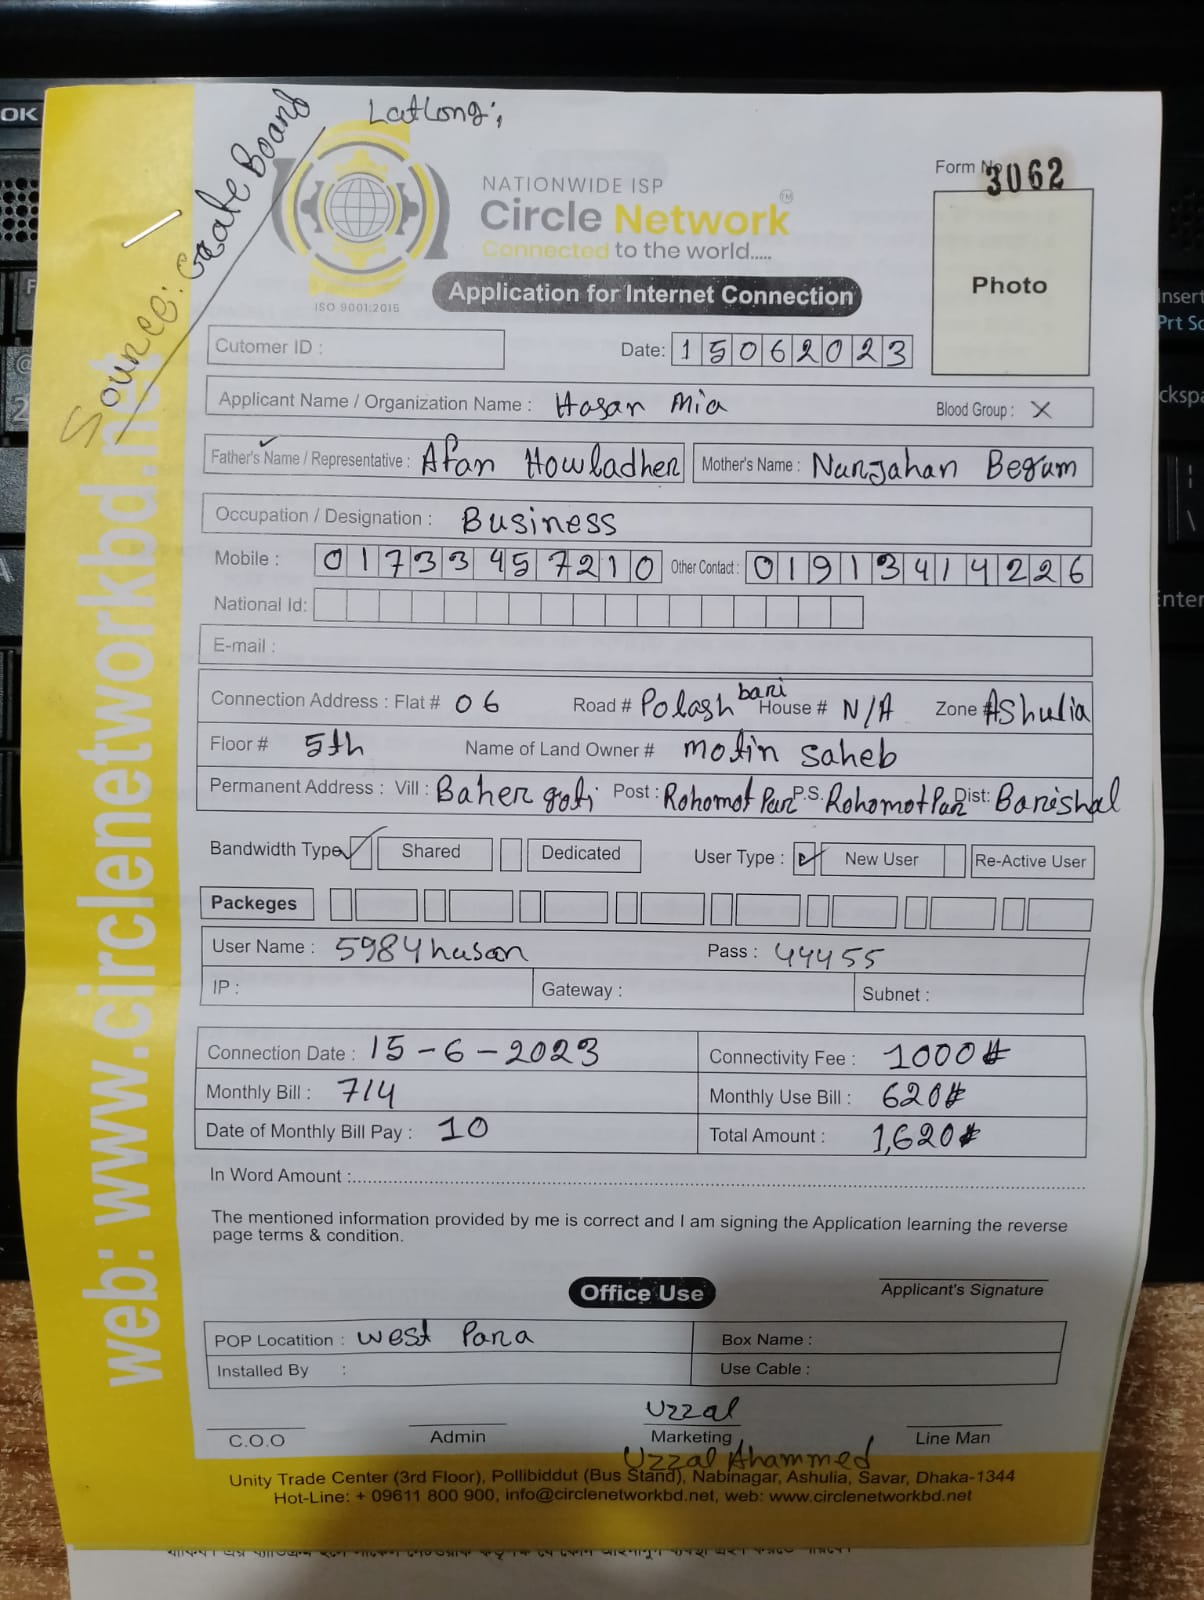 LatLong;
Source: Grate Board
NATIONWIDE ISP
Circle Network TM
Connected to the world.....
ISO 9001:2015
Application for Internet Connection
Form No 3062
Photo
Cutomer ID :
Date: 15062023
Applicant Name / Organization Name : Hasan Mia Blood Group : X
Father's Name / Representative : Afan Howladher Mother's Name : Nurjahan Begum
Occupation / Designation : Business
Mobile : 01733457210 Other Contact : 01913414226
National Id:
E-mail :
Connection Address : Flat # 06 Road # Polash bari House # N/A Zone Ashulia
Floor # 5th Name of Land Owner # Motin Saheb
Permanent Address : Vill : Baher goti Post : Rohomot Par P.S. Rohomot Par Dist: Barishal
Bandwidth Type Shared Dedicated User Type : New User Re-Active User
Packeges
User Name : 5984hasan Pass : 44455
IP : Gateway : Subnet :
Connection Date : 15-6-2023 Connectivity Fee : 1000#
Monthly Bill : 714 Monthly Use Bill : 620#
Date of Monthly Bill Pay : 10 Total Amount : 1,620#
In Word Amount :
The mentioned information provided by me is correct and I am signing the Application learning the reverse
page terms & condition.
Applicant's Signature
Office Use
POP Locatition : West Para Box Name :
Installed By : Use Cable :
Uzzal
C.O.O Admin Marketing Line Man
Uzzal Ahammed
Unity Trade Center (3rd Floor), Pollibiddut (Bus Stand), Nabinagar, Ashulia, Savar, Dhaka-1344
Hot-Line: + 09611 800 900, info@circlenetworkbd.net, web: www.circlenetworkbd.net
web: www.circlenetworkbd.net
OK
Insert
Prt Sc
ckspa
Enter